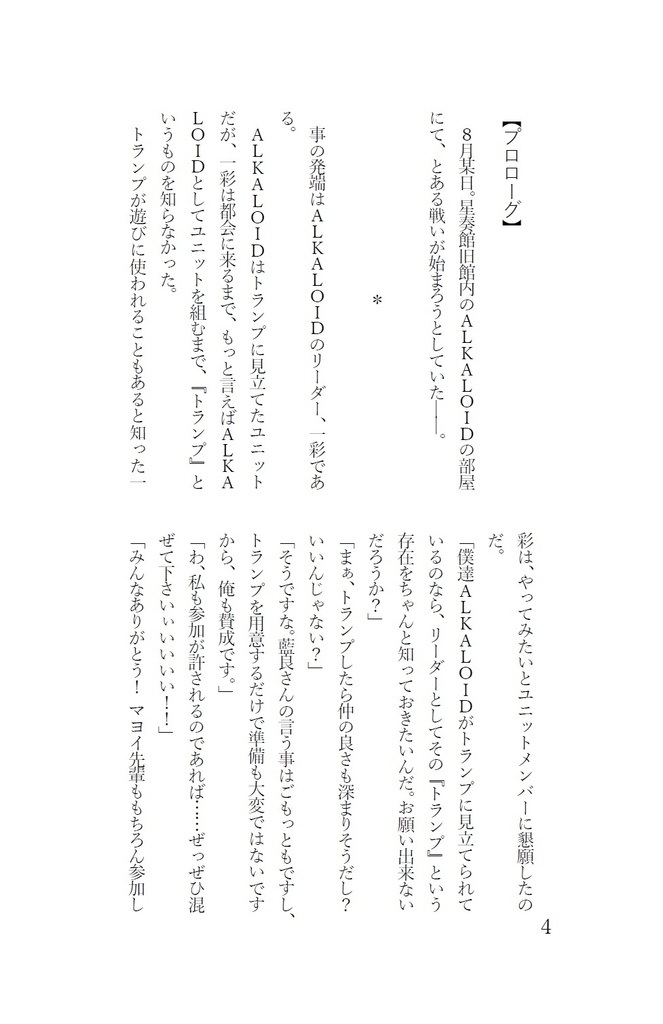 【プロローグ】
　８月某日。星奏館旧館内のＡＬＫＡＬＯＩＤの部屋
にて、とある戦いが始まろうとしていた――。
＊
　事の発端はＡＬＫＡＬＯＩＤのリーダー、一彩であ
る。
　ＡＬＫＡＬＯＩＤはトランプに見立てたユニット
だが、一彩は都会に来るまで、もっと言えばＡＬＫＡ
ＬＯＩＤとしてユニットを組むまで、『トランプ』と
いうものを知らなかった。
　トランプが遊びに使われることもあると知った一
彩は、やってみたいとユニットメンバーに懇願したの
だ。
「僕達ＡＬＫＡＬＯＩＤがトランプに見立てられて
いるのなら、リーダーとしてその『トランプ』という
存在をちゃんと知っておきたいんだ。お願い出来ない
だろうか？」
「まぁ、トランプしたら仲の良さも深まりそうだし？
いいんじゃない？」
「そうですな。藍良さんの言う事はごもっともですし、
トランプを用意するだけで準備も大変ではないです
から、俺も賛成です。」
「わ、私も参加が許されるのであれば……ぜっぜひ混
ぜて下さいぃぃいいいい！！」
「みんなありがとう！　マヨイ先輩ももちろん参加し
4